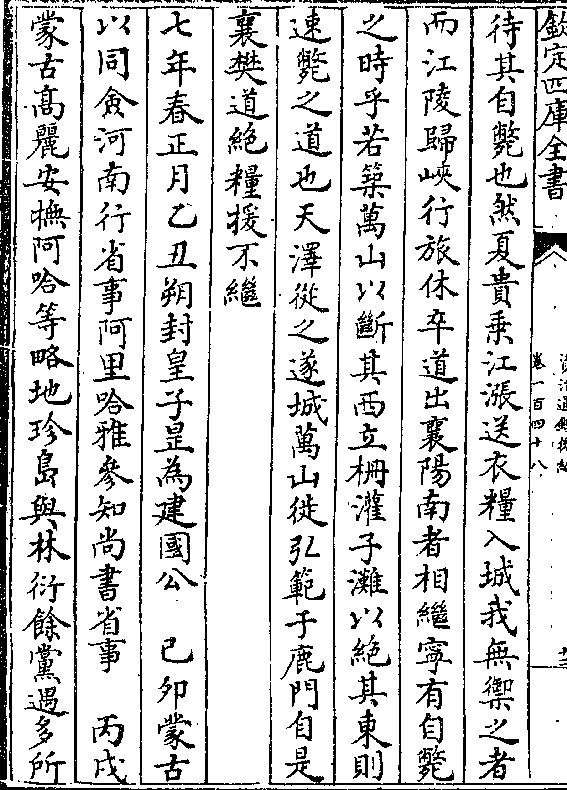 欽定四庫全書
卷一百四十八
待其自斃也然夏貴乗江漲送衣糧入城我無禦之者
而江陵歸峽行旅休卒道出襄陽南者相繼寧有自斃
之時乎若築萬山以斷其西立柵灌子灘以絶其東則
速斃之道也天澤從之遂城萬山徙弘範于鹿門自是
襄樊道絶糧援不繼
七年春正月乙丑朔封皇子昰為建國公　己卯蒙古
以同僉河南行省事阿里哈雅參知尚書省事　丙戌
蒙古高麗安撫阿哈等略地珍島與林衍餘黨遇多所